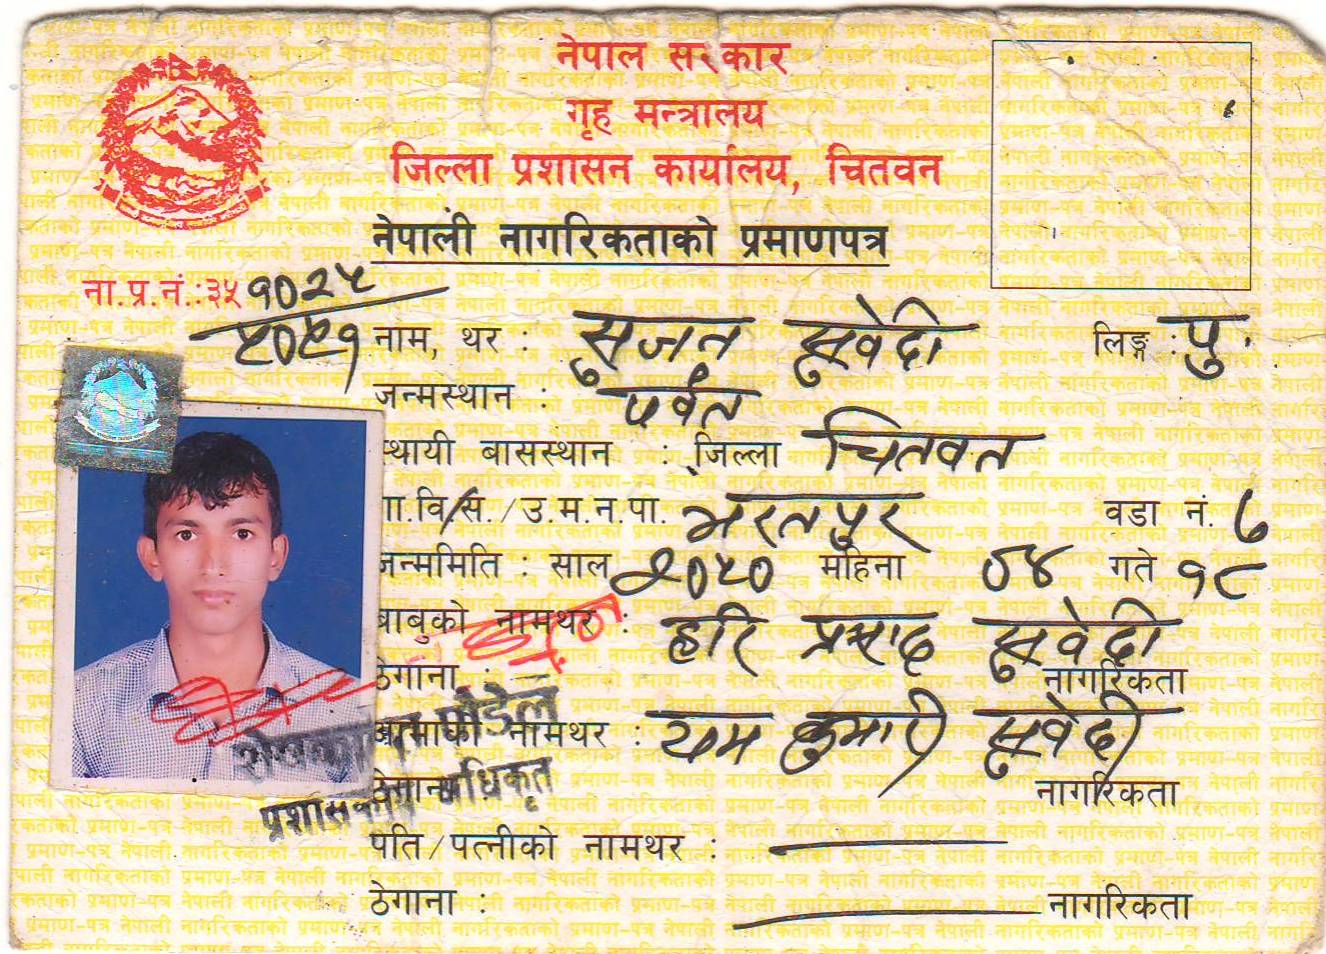 नेपाल सरकार
गृह मन्त्रालय
जिल्ला प्रशासन कार्यालय, चितवन
नेपाली नागरिकताको प्रमाणपत्र
ना.प्र.नं.:३५१०२५
५०५१
नाम, थर : सुजन सुवेदी लिङ्ग : पु.
जन्मस्थान : पर्वत
स्थायी बासस्थान : जिल्ला चितवन
गा.वि.स./उ.म.न.पा. भरतपुर वडा नं. ७
जन्ममिति : साल २०५० महिना ०४ गते १८
बाबुको नामथर : हरि प्रसाद सुवेदी
ठेगाना : नागरिकता
आमाको नामथर : यम कुमारी सुवेदी
ठेगाना नागरिकता
पौडेल
प्रशासकीय अधिकृत
पति/पत्नीको नामथर :
ठेगाना : नागरिकता